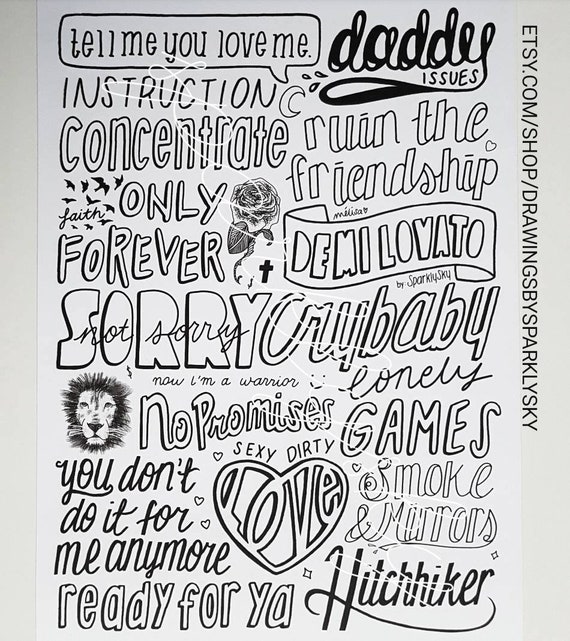 tell me you love me.
daddy
ISSUES
INSTRUCTION
Concentrate
ruin the
friendship
faith
ONLY
FOREVER
mélisa
DEMI LOVATO
by: SparklySky
SORRY
not sorry
Crybaby
now i'm a warrior
lonely
No Promises
GAMES
SEXY DIRTY
LOVE
you don't
do it for
me anymore
Smoke
& Mirrors
ready for ya
Hitchhiker
ETSY.COM/SHOP/DRAWINGSBYSPARKLYSKY